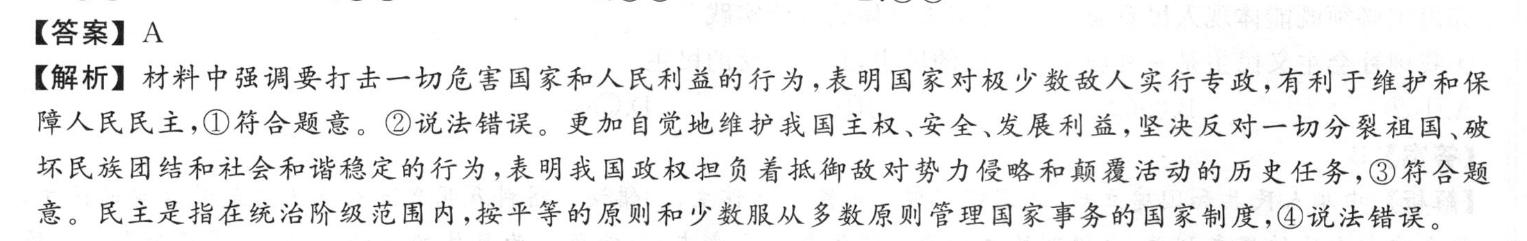 【答案】A
【解析】材料中强调要打击一切危害国家和人民利益的行为,表明国家对极少数敌人实行专政,有利于维护和保
障人民民主,①符合题意。②说法错误。更加自觉地维护我国主权、安全、发展利益,坚决反对一切分裂祖国、破
坏民族团结和社会和谐稳定的行为,表明我国政权担负着抵御敌对势力侵略和颠覆活动的历史任务,③符合题
意。民主是指在统治阶级范围内,按平等的原则和少数服从多数原则管理国家事务的国家制度,④说法错误。